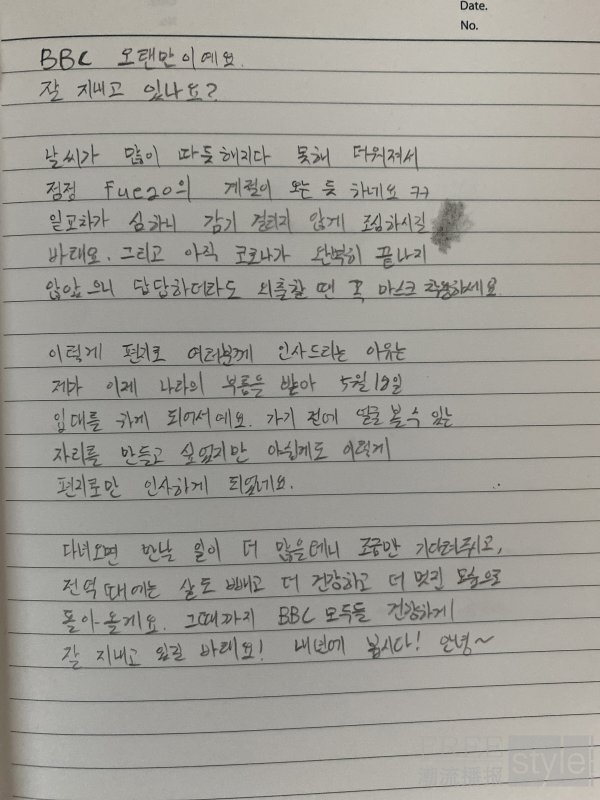 Date.
No.
BBC 오랜만이예요.
잘 지내고 있나요?
날씨가 많이 따듯해지다 못해 더워져서
점점 Fuego의 계절이 오는 듯 하네요 ㅋㅋ
일교차가 심하니 감기 걸리지 않게 조심하시길
바래요. 그리고 아직 코로나가 완벽히 끝나지
않았으니 답답하더라도 외출할 땐 꼭 마스크 착용하세요
이렇게 편지로 여러분께 인사드리는 이유는
제가 이제 나라의 부름을 받아 5월 19일
입대를 하게 되어서예요. 가기 전에 얼굴 볼 수 있는
자리를 만들고 싶었지만 아쉽게도 이렇게
편지로만 인사하게 되었네요.
다녀오면 만날 일이 더 많을테니 조금만 기다려주시고,
전역 때에는 살도 빼고 더 건강하고 더 멋진 모습으로
돌아올게요. 그때까지 BBC 모두들 건강하게
잘 지내고 있길 바래요! 내년에 봅시다! 안녕~
FREE style
潮流播报